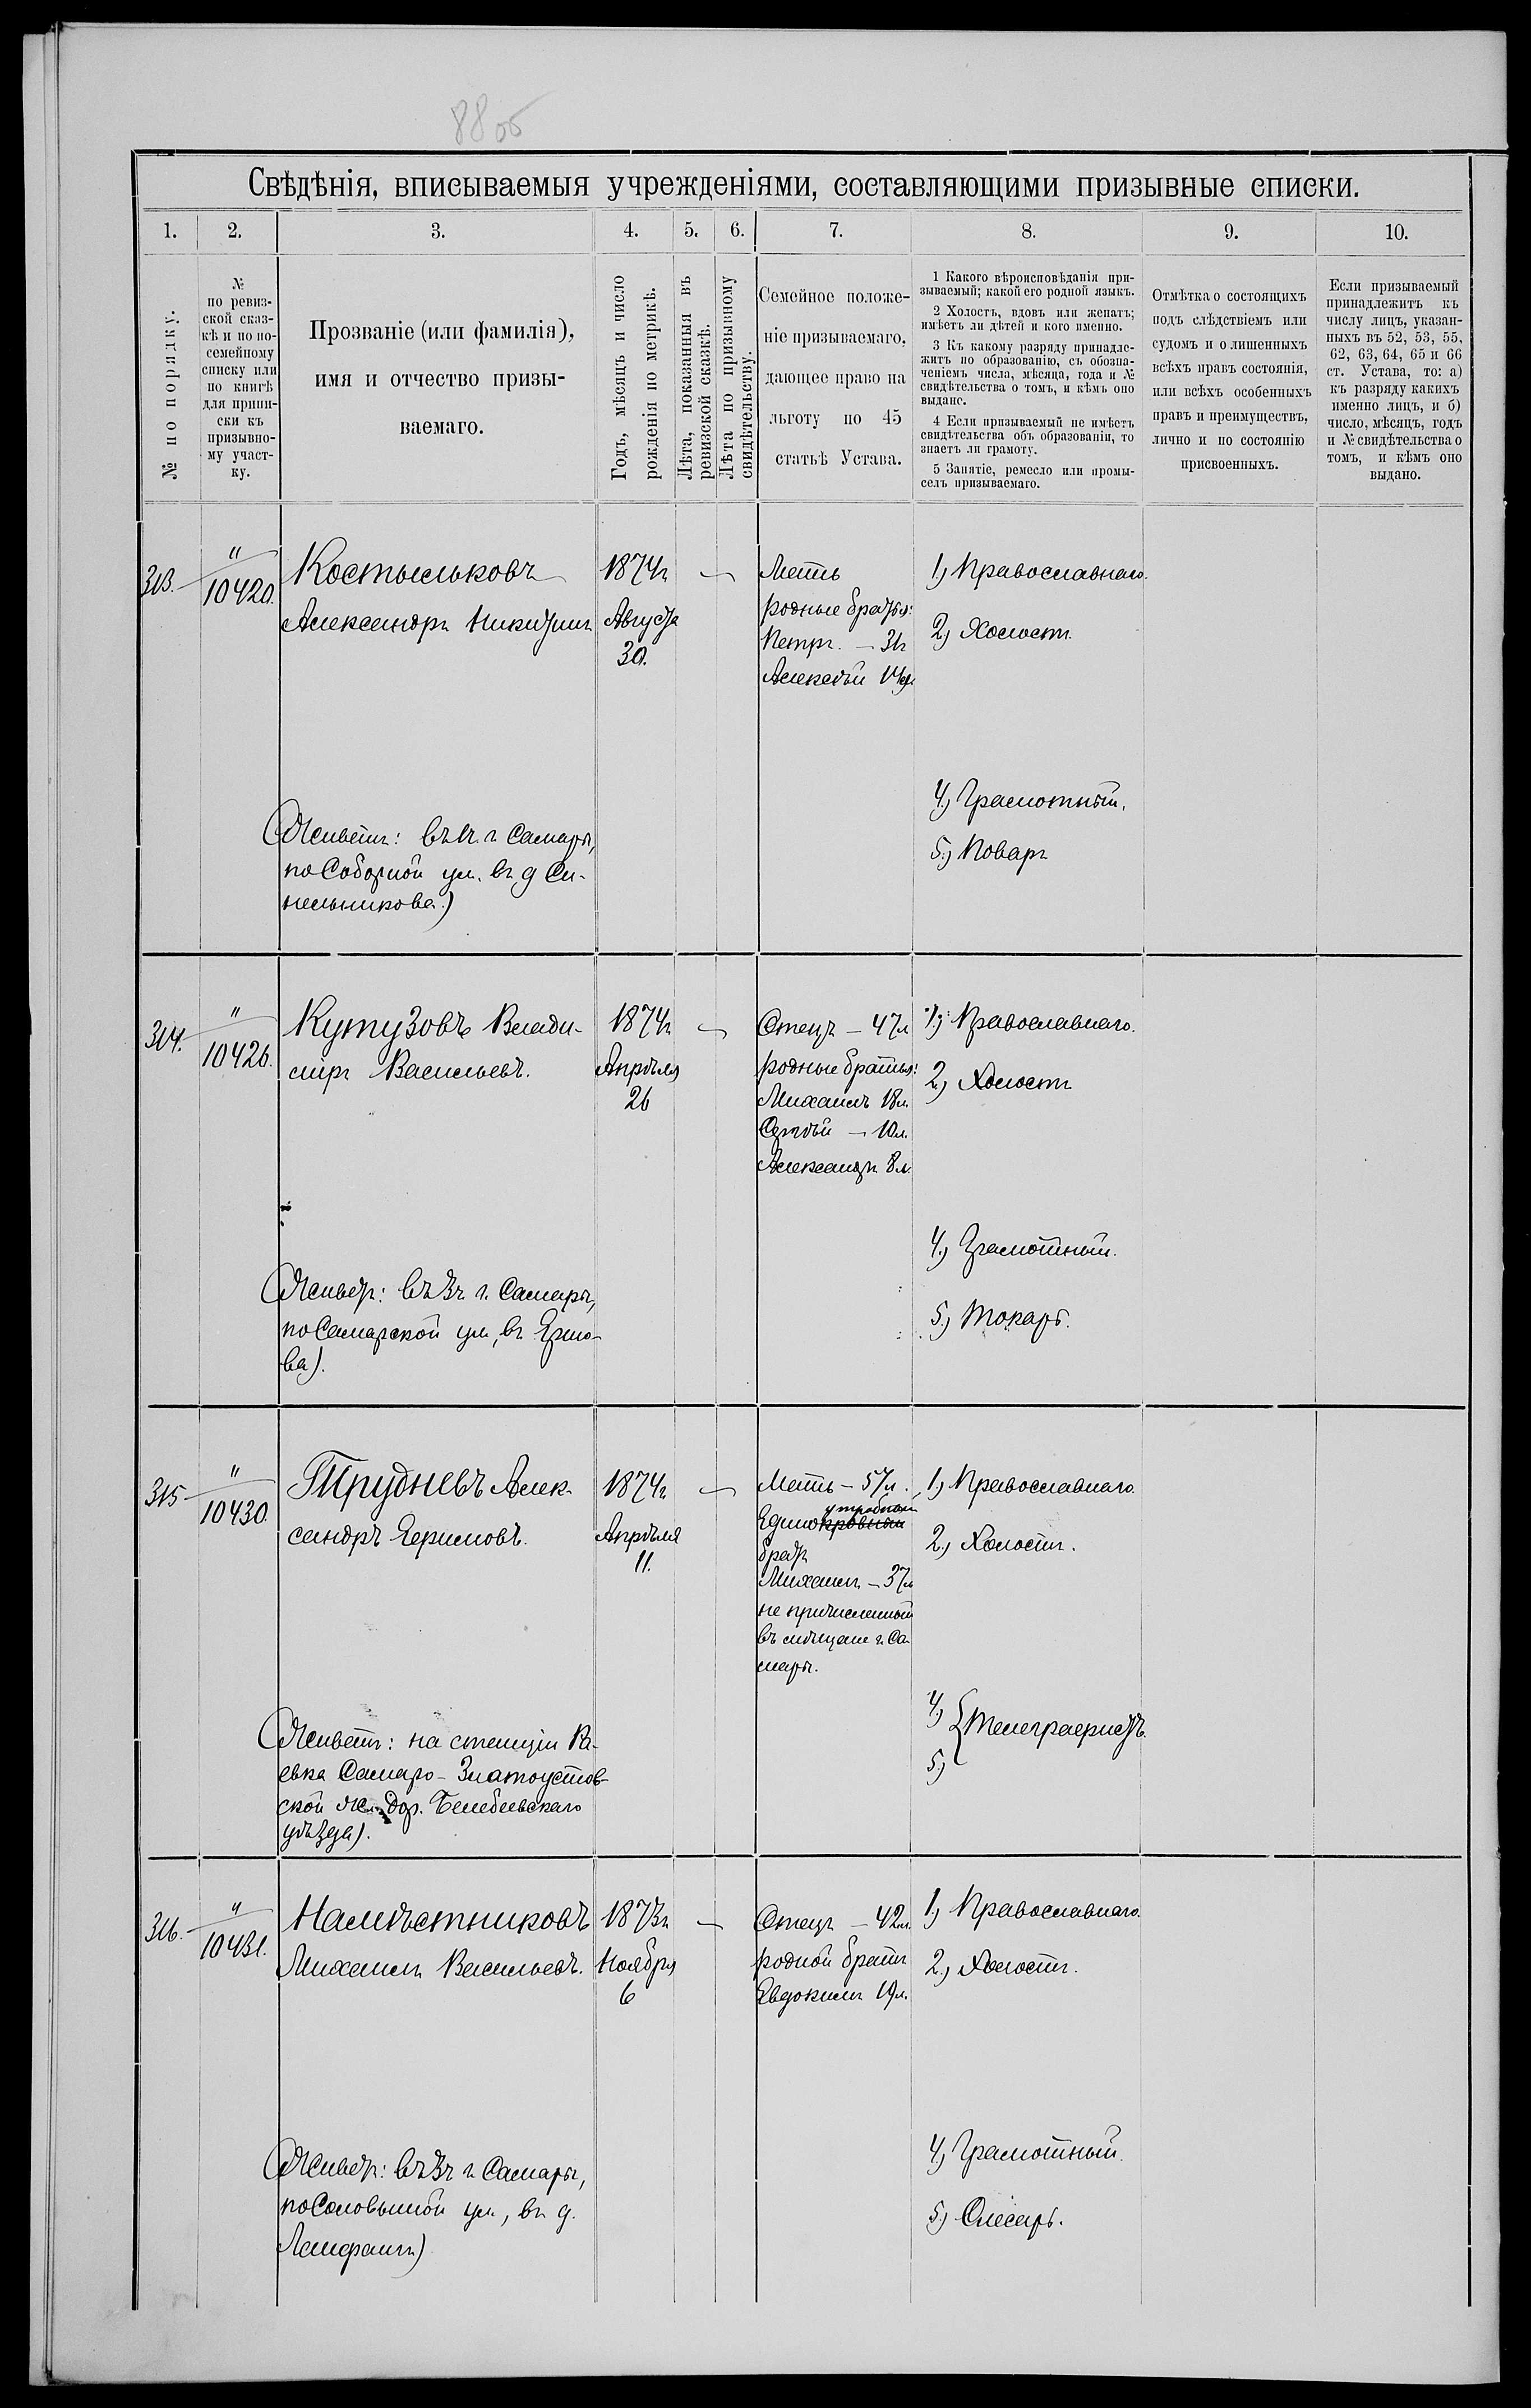 88об
Свѣдѣнія, вписываемыя учрежденіями, составляющими призывные списки.
1. 2. 3. 4. 5. 6. 7. 8. 9. 10.
№ по порядку.
№
по ревиз-
ской сказ-
кѣ и по по-
семейному
списку или
по книгѣ
для припи-
ски къ
призывно-
му участ-
ку.
Прозваніе (или фамилія),
имя и отчество призы-
ваемаго.
Годъ, мѣсяцъ и число
рожденія по метрикѣ.
Лѣта, показанныя въ
ревизской сказкѣ.
Лѣта по призывному
свидѣтельству.
Семейное положе-
ніе призываемаго,
дающее право на
льготу по 45
статьѣ Устава.
1 Какого вѣроисповѣданія при-
зываемый; какой его родной языкъ.
2 Холостъ, вдовъ или женатъ;
имѣетъ ли дѣтей и кого именно.
3 Къ какому разряду принадле-
житъ по образованію, съ обозна-
ченіемъ числа, мѣсяца, года и №
свидѣтельства о томъ, и кѣмъ оно
выдано.
4 Если призываемый не имѣетъ
свидѣтельства объ образованіи, то
знаетъ ли грамоту.
5 Занятіе, ремесло или промы-
селъ призываемаго.
Отмѣтка о состоящихъ
подъ слѣдствіемъ или
судомъ и о лишенныхъ
всѣхъ правъ состоянія,
или всѣхъ особенныхъ
правъ и преимуществъ,
лично и по состоянію
присвоенныхъ.
Если призываемый
принадлежитъ къ
числу лицъ, указан-
ныхъ въ 52, 53, 55,
62, 63, 64, 65 и 66
ст. Устава, то: а)
къ разряду какихъ
именно лицъ, и б)
число, мѣсяцъ, годъ
и № свидѣтельства о
томъ, и кѣмъ оно
выдано.
313.
"
10420.
Костыльковъ
Александръ Никитинъ
(Живетъ: въ 1ч. г. Самары,
по Соборной ул. въ д Си-
нельникова.)
1874г
Августа
30.
—
Мать
родные братья:
Петръ. — 3г
Алексѣй 14л
1.) Православнаго.
2.) Холостъ.
4.) Грамотный.
5.) Поваръ
314.
"
10426.
Кутузовъ Влади-
миръ Васильевъ.
(Живетъ: въ 3ч г. Самары,
по Самарской ул., въ Ермо-
ва).
1874г
Апрѣля
26
—
Отецъ — 47л
родные братья:
Михаилъ 18л.
Сергѣй — 10л.
Александръ 8л.
1.) Православнаго.
2.) Холостъ
4.) Грамотный.
5.) Токарь.
315
"
10430.
Трудневъ Алек-
сандръ Ефимовъ.
(Живетъ: на станціи Ра-
евка Самаро-Златоустов-
ской жел. дор. Белебеевскаго
уѣзда).
1874г
Апрѣля
11.
—
Мать — 57л.
утробный
Единокровный
братъ
Михаилъ — 37л
не причисленный
въ мѣщане г. Са-
мары.
1.) Православнаго.
2.) Холостъ.
4.)
{Телеграфистъ.
5.)
316.
"
10431.
Намѣстниковъ
Михаилъ Васильевъ.
(Живетъ: въ 3ч г. Самары,
по Соловьиной ул., въ д.
1873г
Ноября
6
—
Отецъ — 42л.
родной братъ
Евдокимъ 19л.
1.) Православнаго.
2.) Холостъ.
4.) Грамотный.
5.) Слесарь.